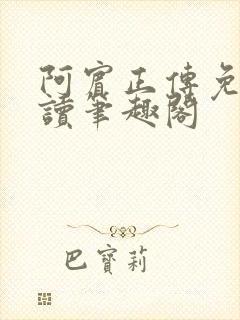 阿賓正傳免
讀筆趣閣
巴寶莉